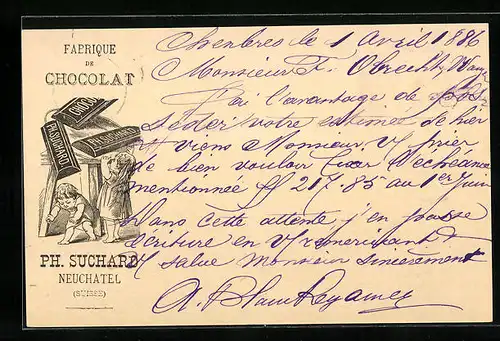 FABRIQUE
DE
CHOCOLAT
PH. SUCHARD
PH. SUCHARD
PH. SUCHARD
NEUCHATEL
(SUISSE)
Chexbres le 1 Avril 1886
Monsieur F. Obrecht
J'ai l'avantage de
séder votre estimée de hier
viens Monsieur V prier
de bien vouloir fixer l'échéance
mentionnée ff 217.85 au 1er Juin
Dans cette attente j'en passe
écriture en V remerciant &
V salue Monsieur sincèrement
A.